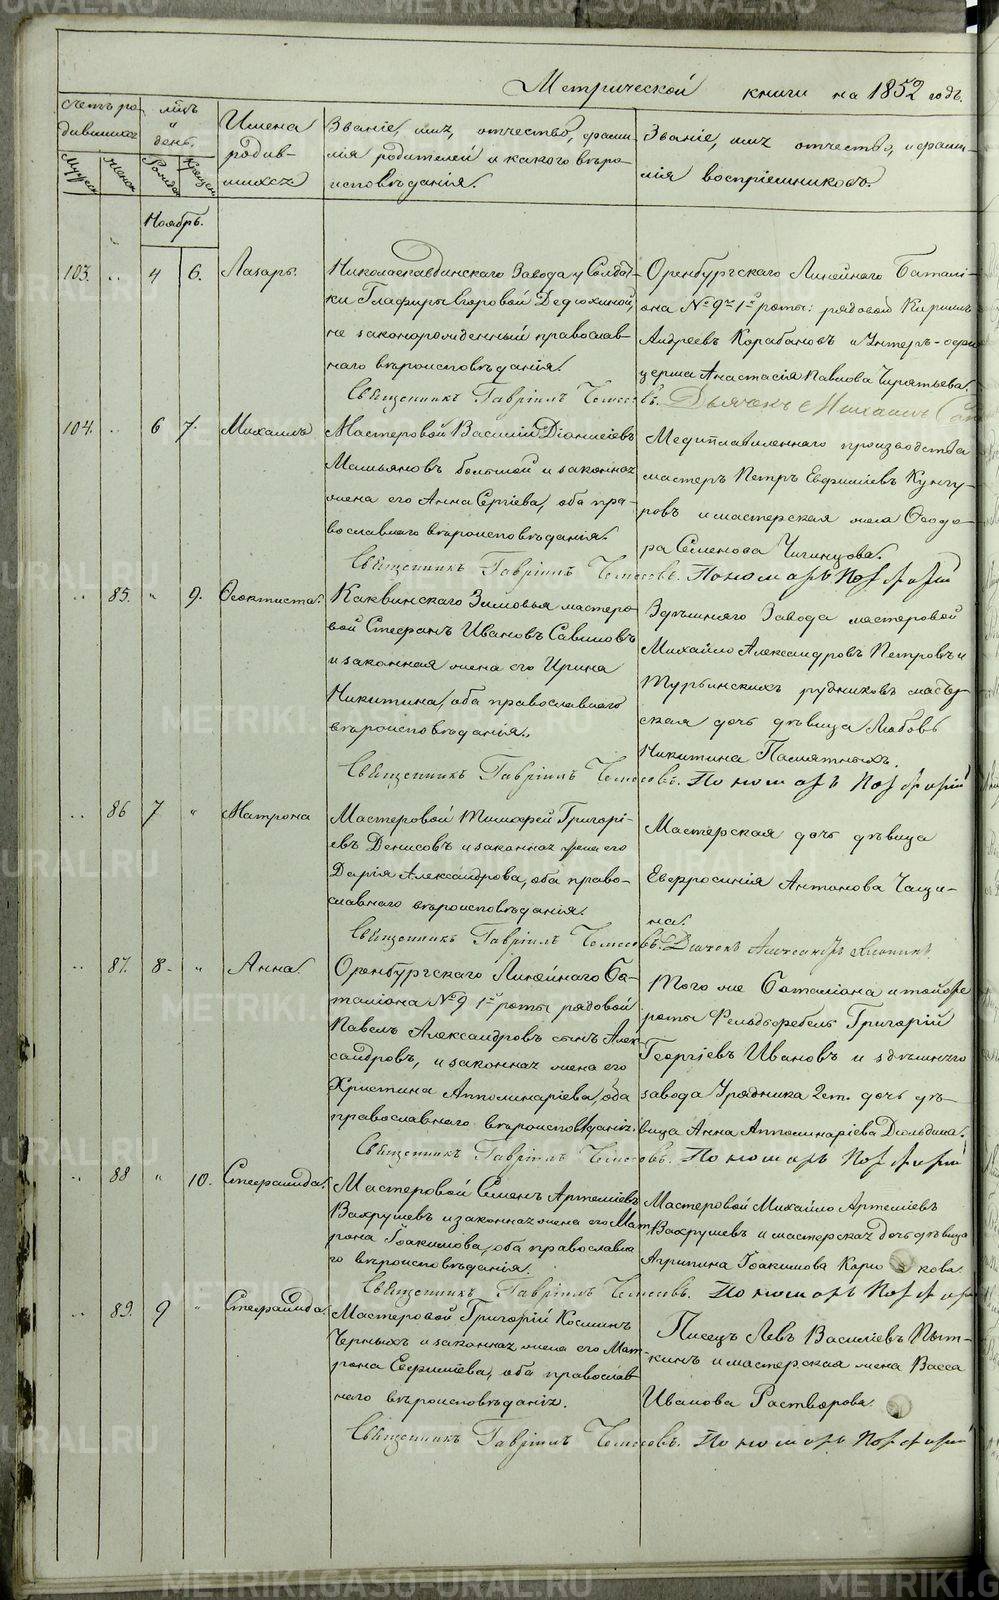 Метрической книги на 1852 годъ.
Счетъ ро-
дившихся
Мужеска
Женска
Мѣсяцъ
и
день.
Рожден.
Крещен.
Имена
родив-
шихся
Званіе, имя, отчество, фами-
лія родителей и какого вѣро-
исповѣданія.
Званіе, имя отчество, и фами-
лія воспріемниковъ.
Ноябрь.
103. 4 6. Лазарь.
Николаепавдинскаго Завода у Солдат-
ки Глафиры Егоровой Дедюхиной,
не законорожденный православ-
наго вѣроисповѣданія.
Оренбургскаго Линейнаго Баталі-
она № 9го 1й роты: рядовой Кирилъ
Андреевъ Корабановъ и Унтеръ-офи
церша Анастасія Павлова
Священникъ Гавріилъ Дьячекъ Михаилъ
104. 6 7. Михаилъ
Мастеровой Василій Діонисіевъ
Мальяновъ большой и законная
жена его Анна Сергіева, оба пра-
вославнаго вѣроисповѣданія.
Медиплавиленнаго производства
мастеръ Петръ Евфиміевъ Кунгу-
ровъ и мастерская жена Ѳеодо-
ра Семенова Чигинцова.
Священникъ Гавріилъ Пономарь Порфирій
85. " 9. Ѳеоктиста.
Каквинскаго Зимовья мастеро-
вой Стефанъ Ивановъ Савиновъ
и законная жена его Ирина
Никитина, оба православнаго
вѣроисповѣданія.
Здѣшняго Завода мастеровой
Михайло Александровъ Петровъ и
Турьинскихъ рудниковъ мастер-
ская дочь дѣвица Любовь
Никитина Памятныхъ.
Священникъ Гавріилъ Пономарь Порфирій
86 7 " Матрона
Мастеровой Тимофей Григорі-
евъ Денисовъ и законная жена его
Дарія Александрова, оба право-
славнаго вѣроисповѣданія.
Мастерская дочь дѣвица
Евфросинія Антонова Чащи-
на.
Священникъ Гавріилъ Дьячекъ Александръ
87. 8. " Анна.
Оренбургскаго Линейнаго Ба-
таліона № 9 1й роты рядовой
Павелъ Александровъ сынъ Алек
сандровъ, и законная жена его
Христина Апполинаріева, оба
православнаго вѣроисповѣданія.
Того же Баталіона и той же
роты Фельдфебель Григорій
Георгіевъ Ивановъ и здѣшняго
завода Урядника 2 ст. дочь дѣ-
вица Анна Апполинаріева Дюльдина.
Священникъ Гавріилъ Пономарь Порфирій
88 " 10. Стефанида.
Мастеровой Семенъ Артеміевъ
Вахрушевъ и законная жена его Мат
рона Іоакимова, оба православна
го вѣроисповѣданія.
Мастеровой Михайло Артеміевъ
Вахрушевъ и мастерская дочь дѣвица
Агрипина Іоакимова
Священникъ Гавріилъ Пономарь Порфирій
89. 9 " Стефанида.
Мастеровой Григорій Косминъ
Черныхъ и законная жена его Мат-
рона Евфиміева, оба православ
наго вѣроисповѣданія.
Писецъ Левъ Василіевъ Пыт-
кинъ и мастерская жена Васса
Иванова Растворова.
Священникъ Гавріилъ Пономарь Порфирій
METRIKI.GASO-URAL.RU